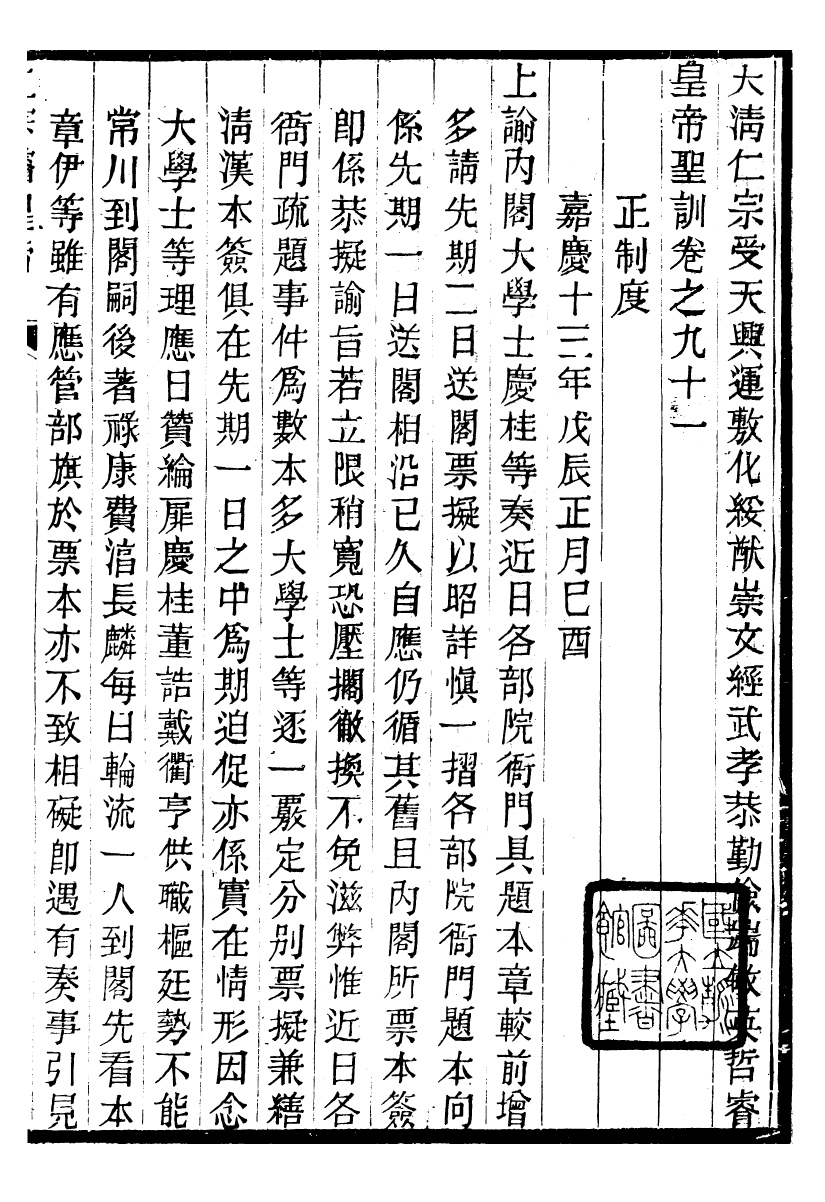 大清仁宗受天興運敷化綏猷崇文經武孝恭勤儉端敏英哲睿
皇帝聖訓卷之九十一
正制度
嘉慶十三年戊辰正月己酉
上諭內閣大學士慶桂等奏近日各部院衙門具題本章較前增
多請先期二日送閣票擬以昭詳慎一摺各部院衙門題本向
係先期一日送閣相沿已久自應仍循其舊且內閣所票本簽
即係恭擬諭旨若立限稍寬恐壓擱徹換不免滋弊惟近日各
衙門疏題事件為數本多大學士等逐一覈定分別票擬兼繕
清漢本簽俱在先期一日之中為期迫促亦係實在情形因念
大學士等理應日贊綸扉慶桂董誥戴衢亨供職樞廷勢不能
常川到閣嗣後著祿康費淳長麟每日輪流一人到閣先看本
章伊等雖有應管部旗於票本亦不致相礙即遇有奏事引見
國立清
華大學
圖書
館藏